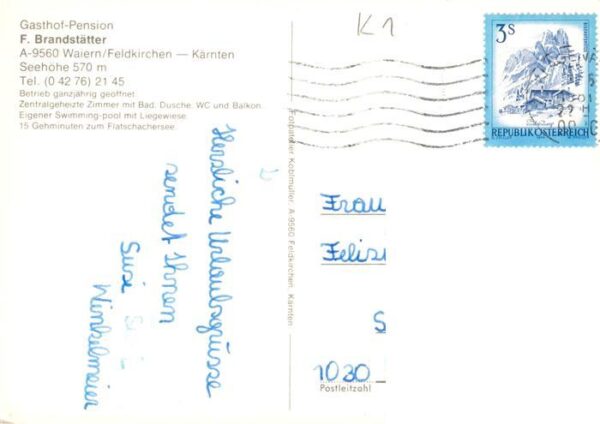 Gasthof-Pension
F. Brandstätter
A-9560 Waiern/Feldkirchen — Kärnten
Seehöhe 570 m
Tel. (0 42 76) 21 45
Betrieb ganzjährig geöffnet.
Zentralgeheizte Zimmer mit Bad, Dusche, WC und Balkon.
Eigener Swimming-pool mit Liegewiese.
15 Gehminuten zum Flatschachersee.
K1
3S
REPUBLIK ÖSTERREICH
Herzliche Urlaubsgrüsse
sendet Ihnen
Susi
Winkelmaier
A-9560 Feldkirchen, Kärnten
Frau
Felis
S
1030
Postleitzahl